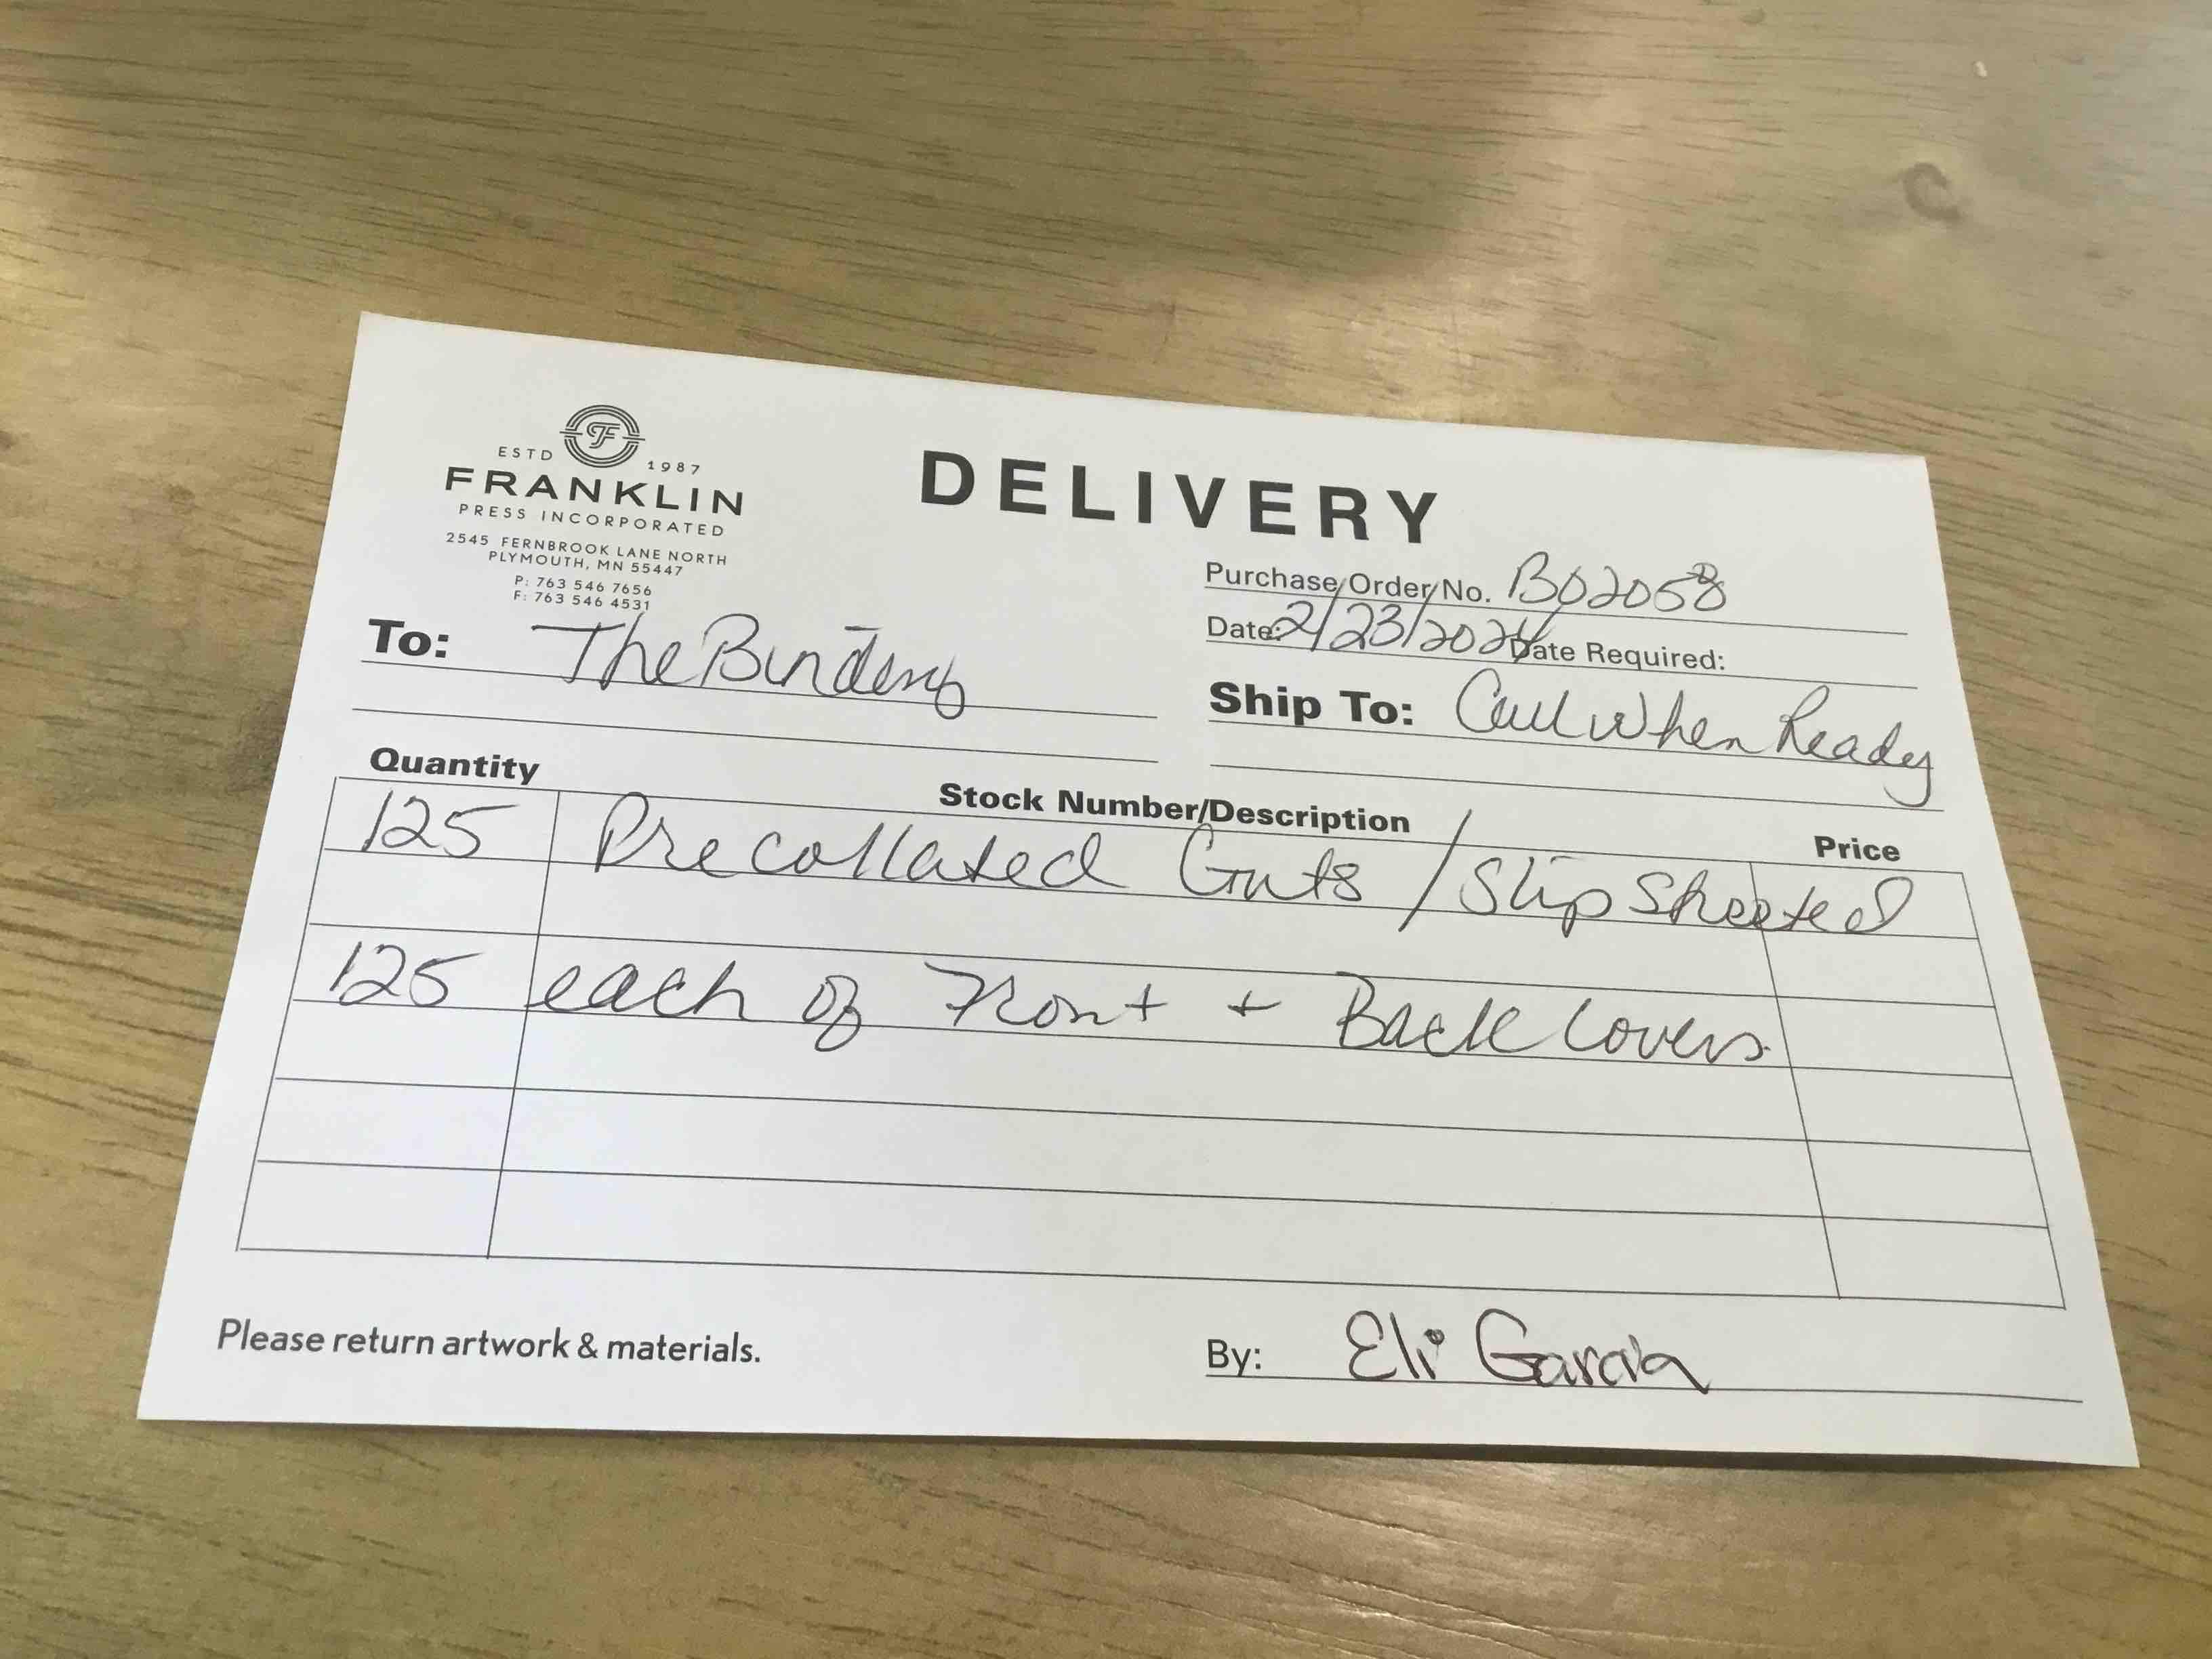 ESTD 1987
FRANKLIN
PRESS INCORPORATED
2545 FERNBROOK LANE NORTH
PLYMOUTH, MN 55447
P: 763 546 7656
F: 763 546 4531
DELIVERY
Purchase Order No. B02058
Date: 2/23/2024 Date Required:
To: The Bindery
Ship To: Call When Ready
Quantity Stock Number/Description Price
125 Precollated Guts / Slip Sheeted
125 each of Front + Back Covers
Please return artwork & materials.
By: Eli Garcia